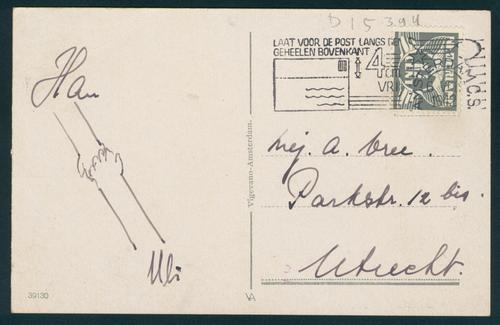 D 15394
LAAT VOOR DE POST LANGS DE
GEHEELEN BOVENKANT
4 cm
VRIJ
Han
Mej. A. Vree.
Parkstr. 12 bis.
Utrecht.
Uli
Vigevano-Amsterdam.
39130
VA